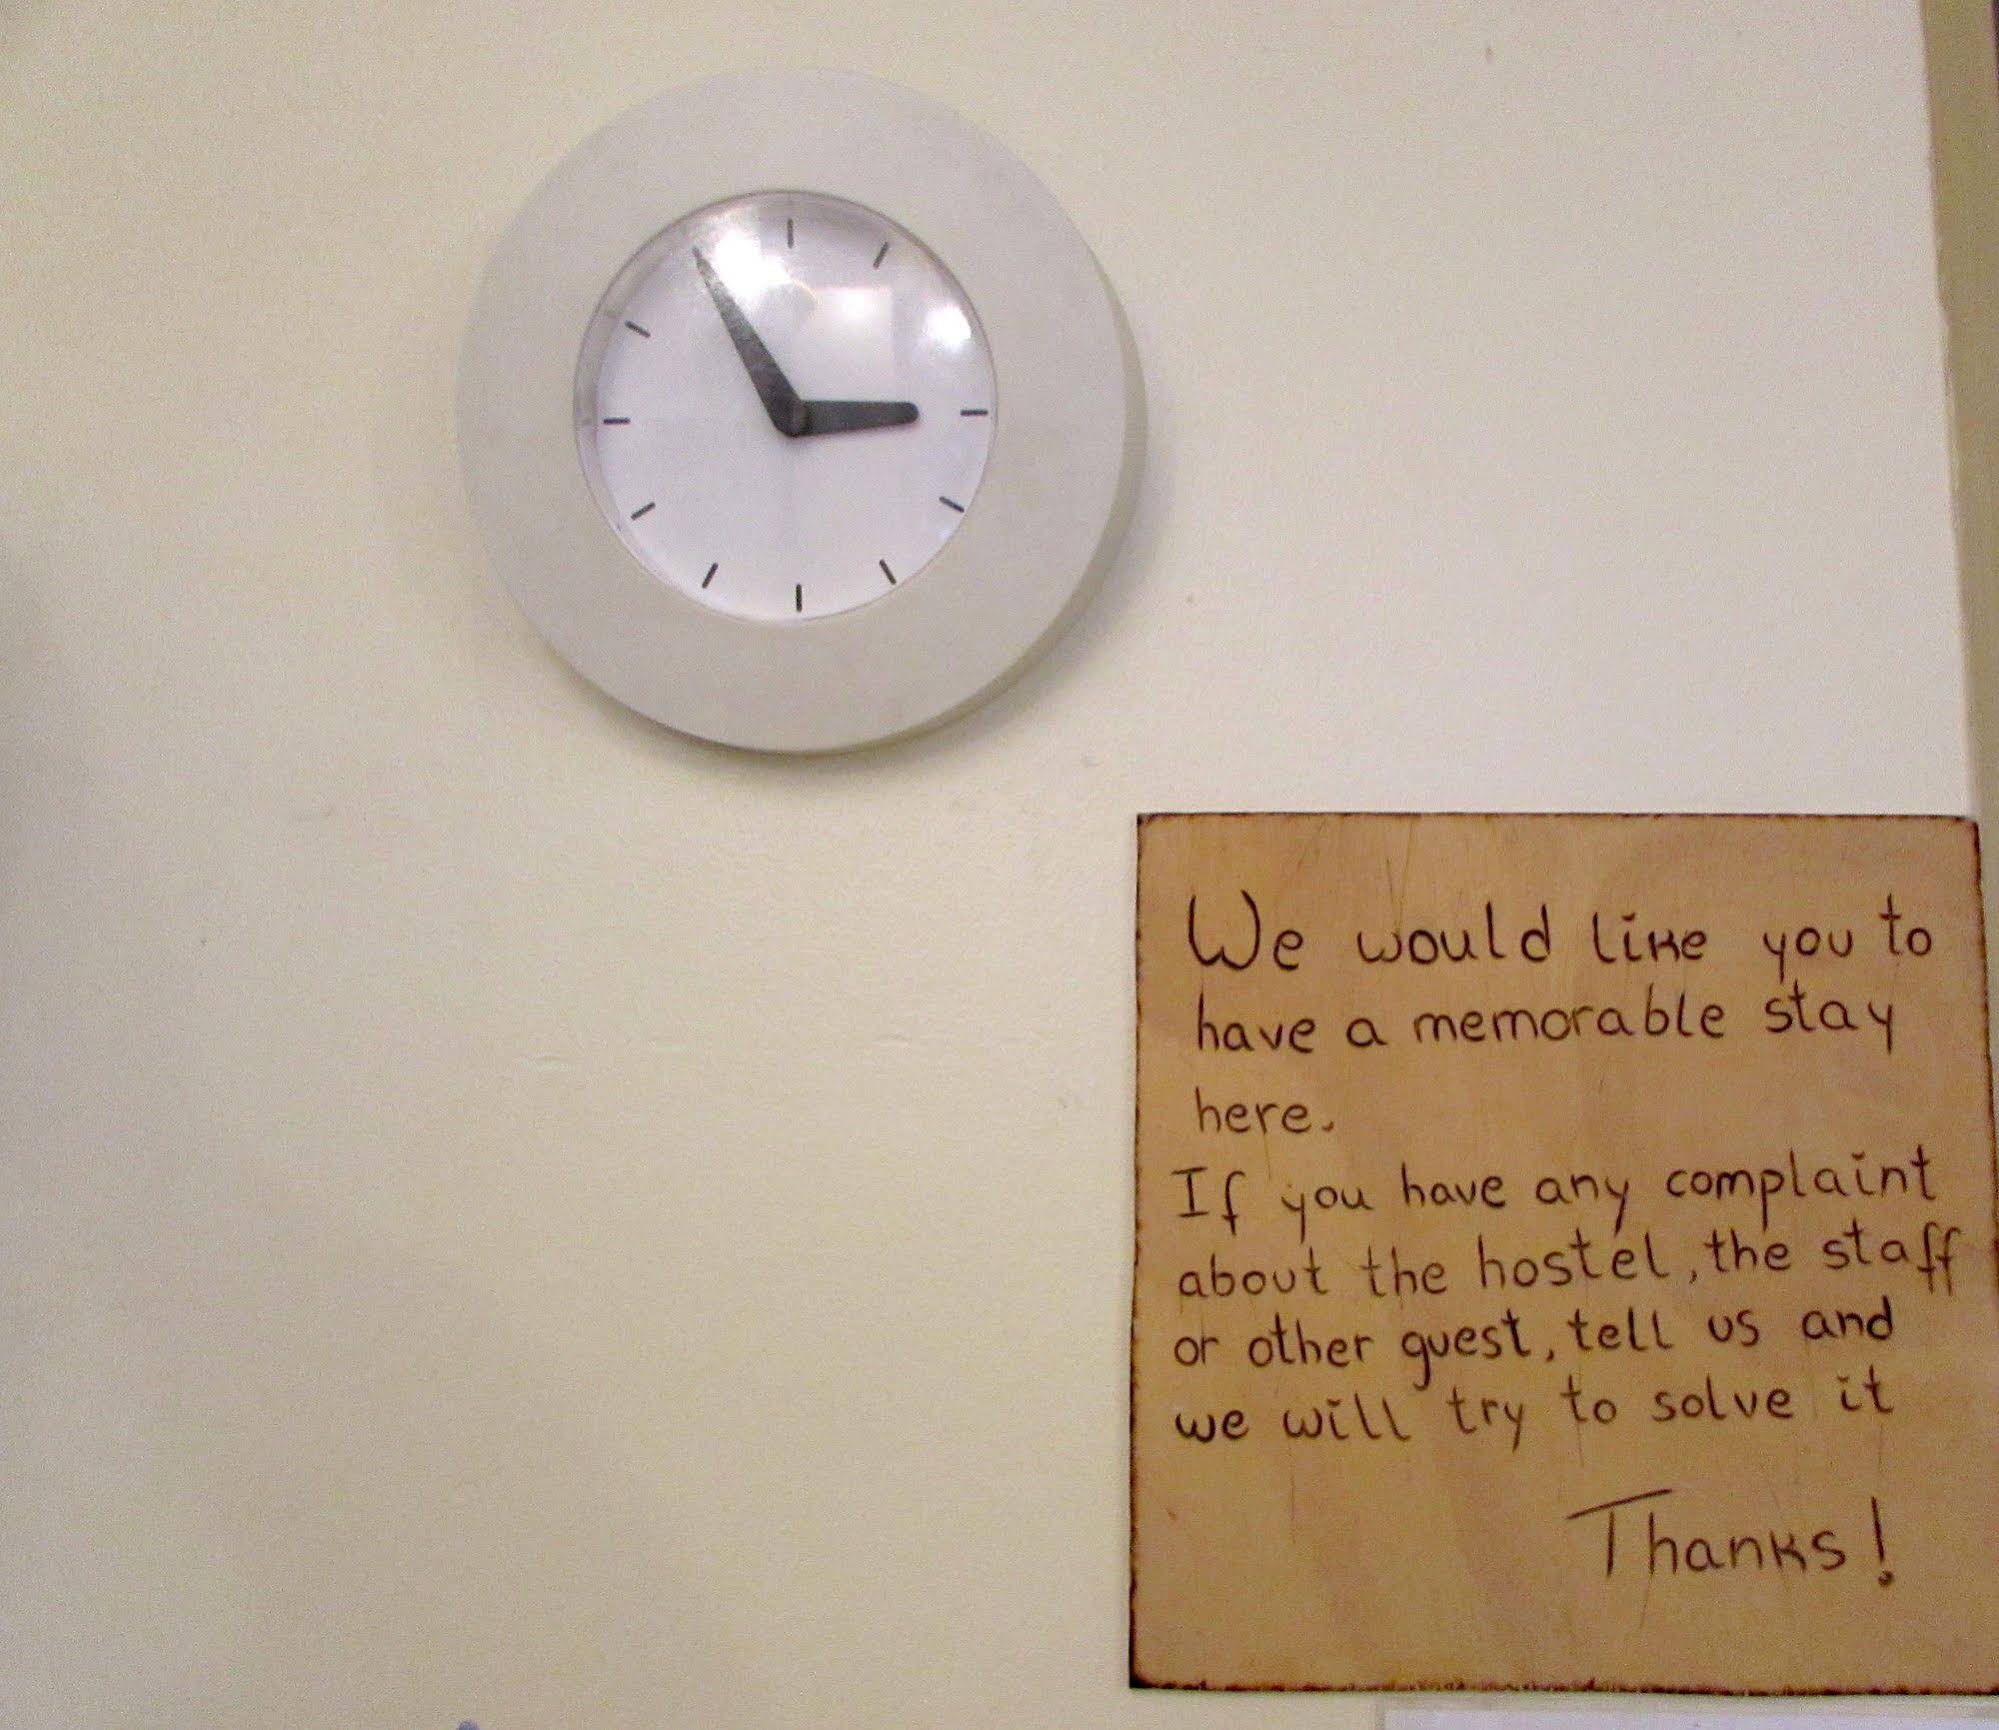 We would like you to
have a memorable stay
here.
If you have any complaint
about the hostel, the staff
or other guest, tell us and
we will try to solve it
Thanks!